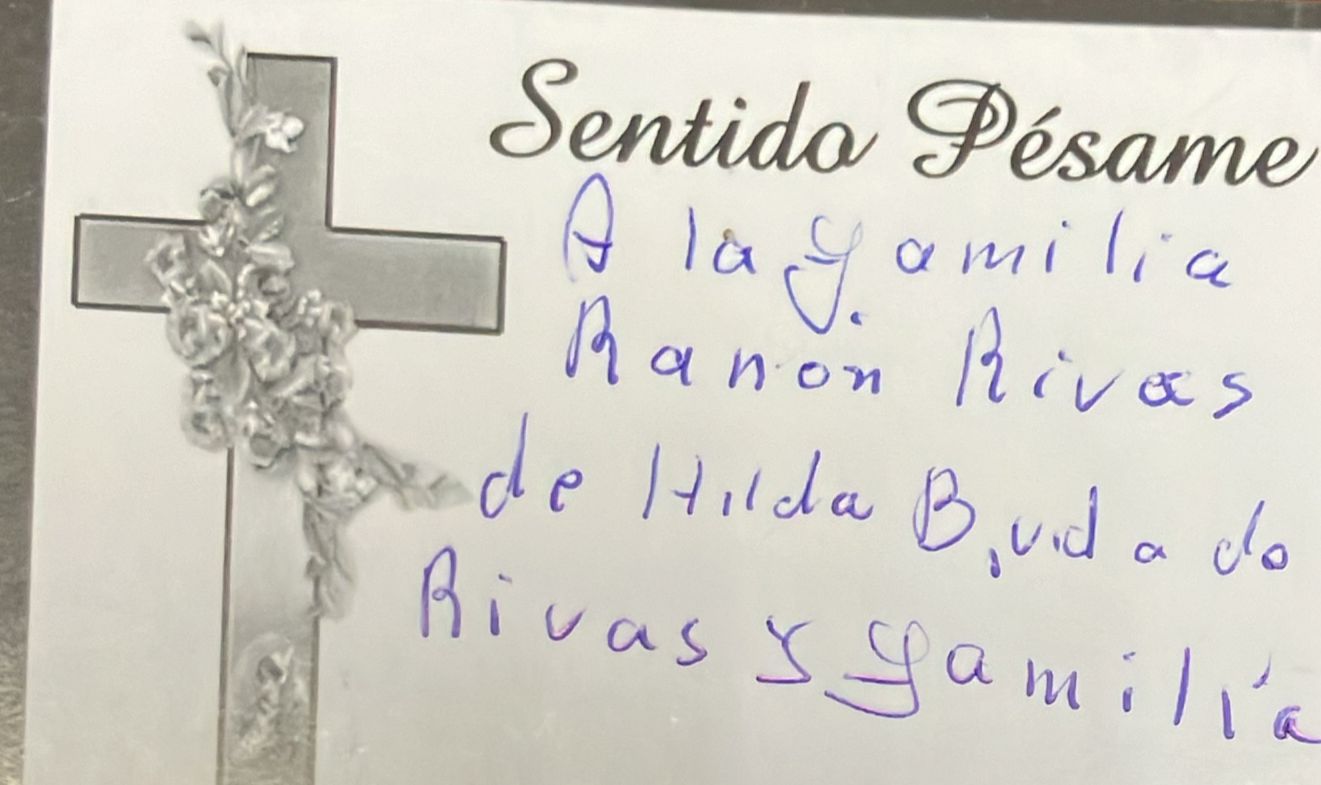 Sentido Pésame
A la familia
Ranón Rivas
de Hilda B. vda do
Rivas y familia